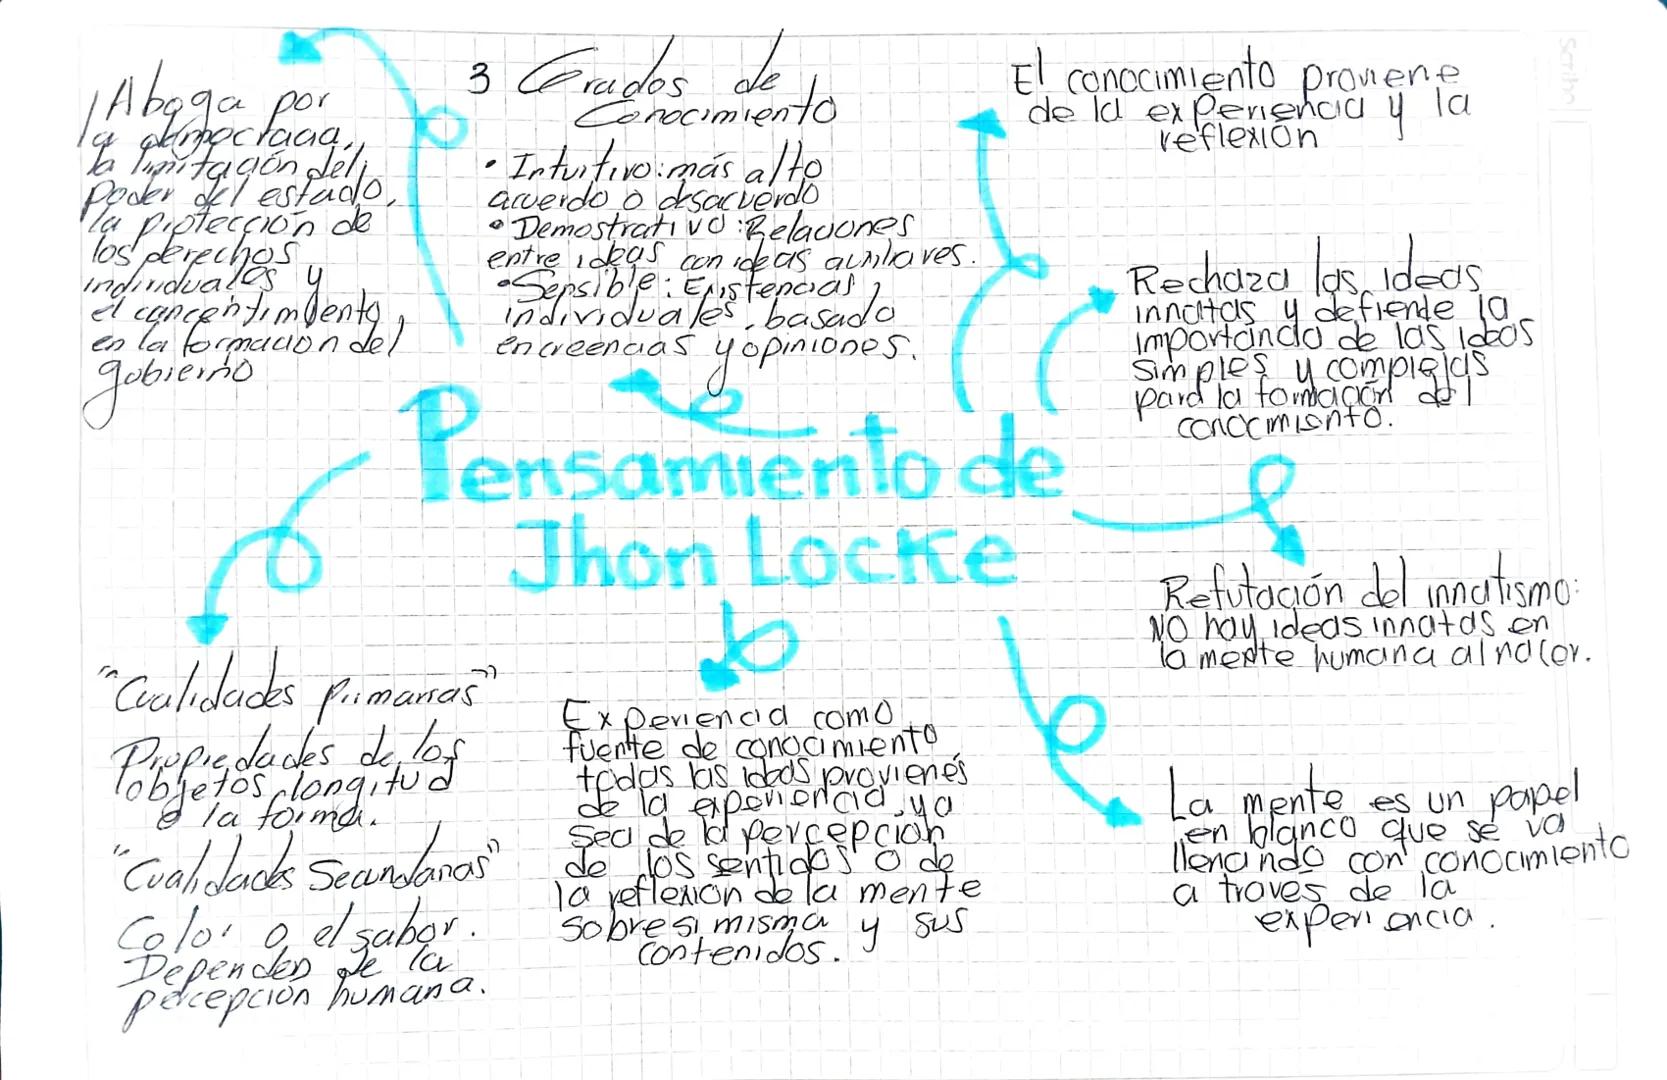 Aboga por
la democracia,
la limitación del
poder del estado,
la protección de
los derechos
individuales y
el concentimiento
en la formación del
gobierno
3 Grados de
Conocimiento
• Intuitivo: más alto
acuerdo o desacuerdo
• Demostrativo: Relaciones
entre ideas con ideas auxiliares.
• Sensible: Existencias
individuales, basado
en creencias y opiniones.
El conocimiento proviene
de la experiencia y la
reflexión
Rechaza las ideas
innatas y defiende la
importancia de las ideas
simples y complejas
para la formación del
conocimiento.
Pensamiento de
Jhon Locke
Refutación del innatismo:
NO hay ideas innatas en
la mente humana al nacer.
"Cualidades primarias"
Propiedades de los
objetos, longitud
o la forma.
"Cualidades Secundarias"
Color o el sabor.
Dependen de la
percepción humana.
Experiencia como
fuente de conocimiento
todas las ideas provienes
de la experiencia, ya
sea de la percepción
de los sentidos o de
la reflexion de la mente
sobre si misma y sus
contenidos.
La mente es un papel
en blanco que se va
llenando con conocimiento
a traves de la
experiencia.
Scribe